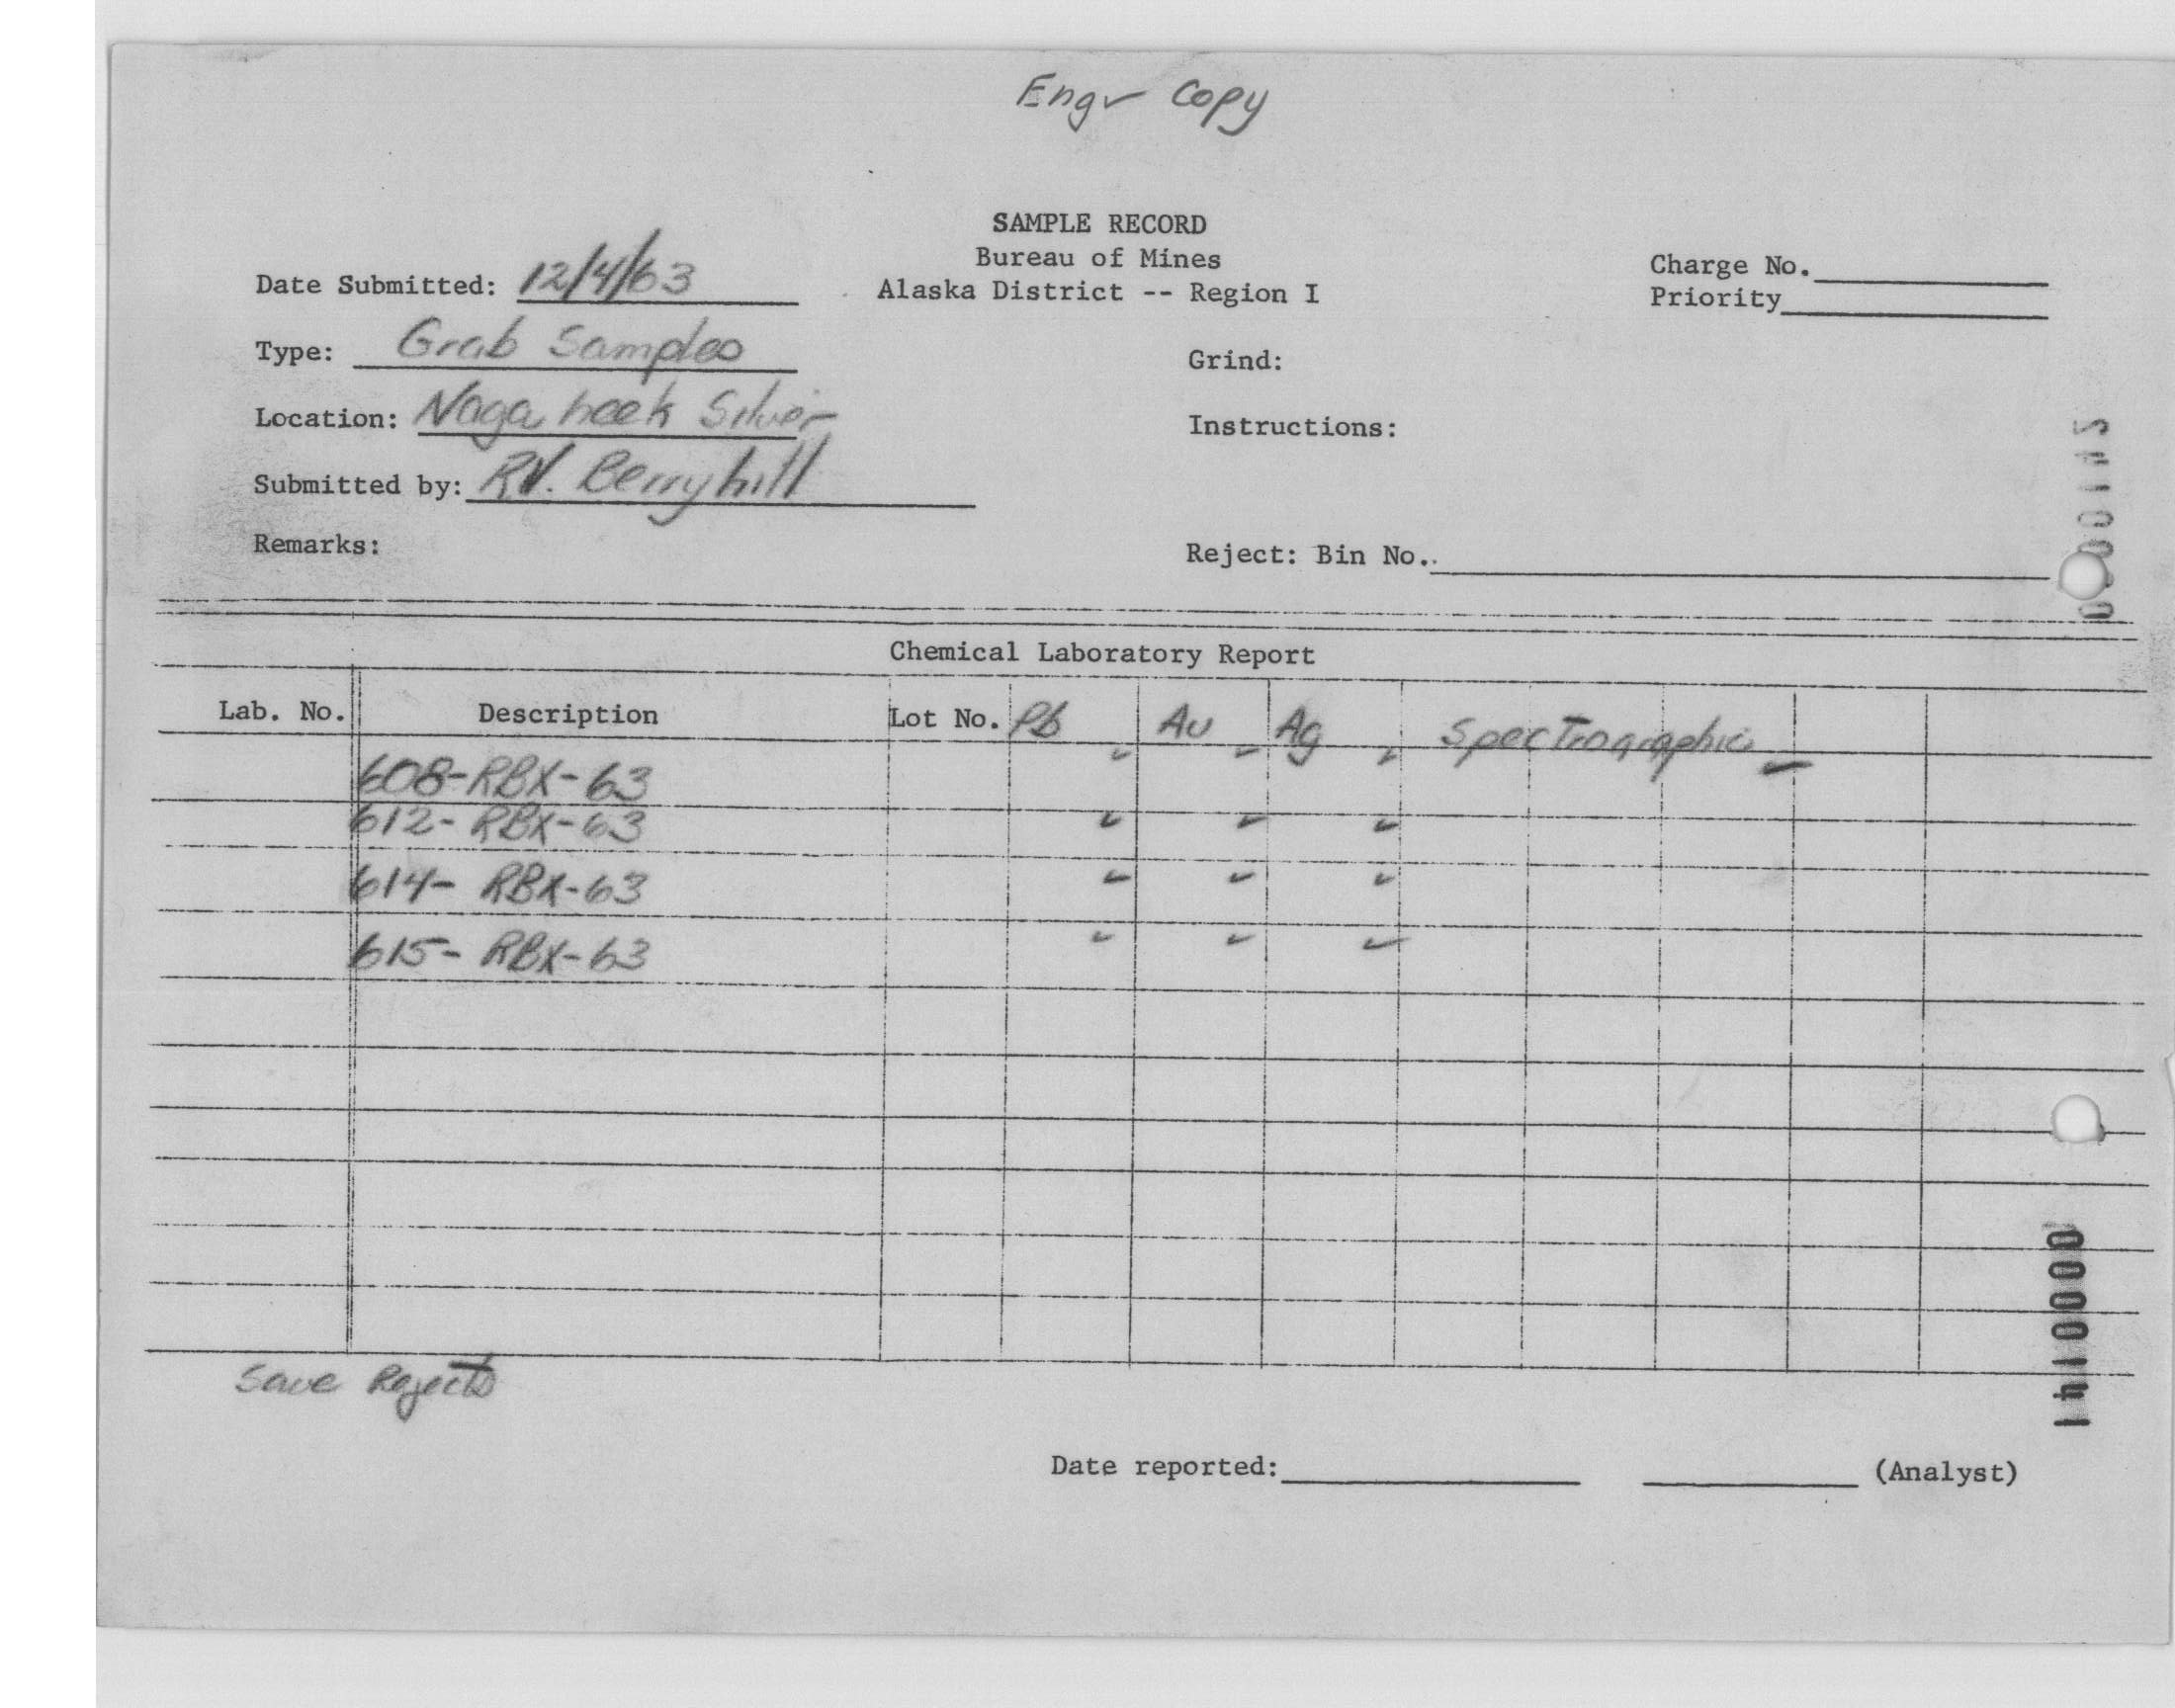 Engr Copy
SAMPLE RECORD
Bureau of Mines
Alaska District -- Region I
Date Submitted: 12/4/63
Charge No.
Priority
Type: Grab Samples
Grind:
Location: Naga heek Silver
Instructions:
Submitted by: RV. Berryhill
Remarks:
Reject: Bin No.
Chemical Laboratory Report
Lab. No. Description Lot No. Pb Au Ag Spectrographic
608-RBX-63 ✓ ✓ ✓ ✓
612-RBX-63 ✓ ✓ ✓
614-RBX-63 ✓ ✓ ✓
615-RBX-63 ✓ ✓ ✓
Save Rejects
Date reported: (Analyst)
0000141